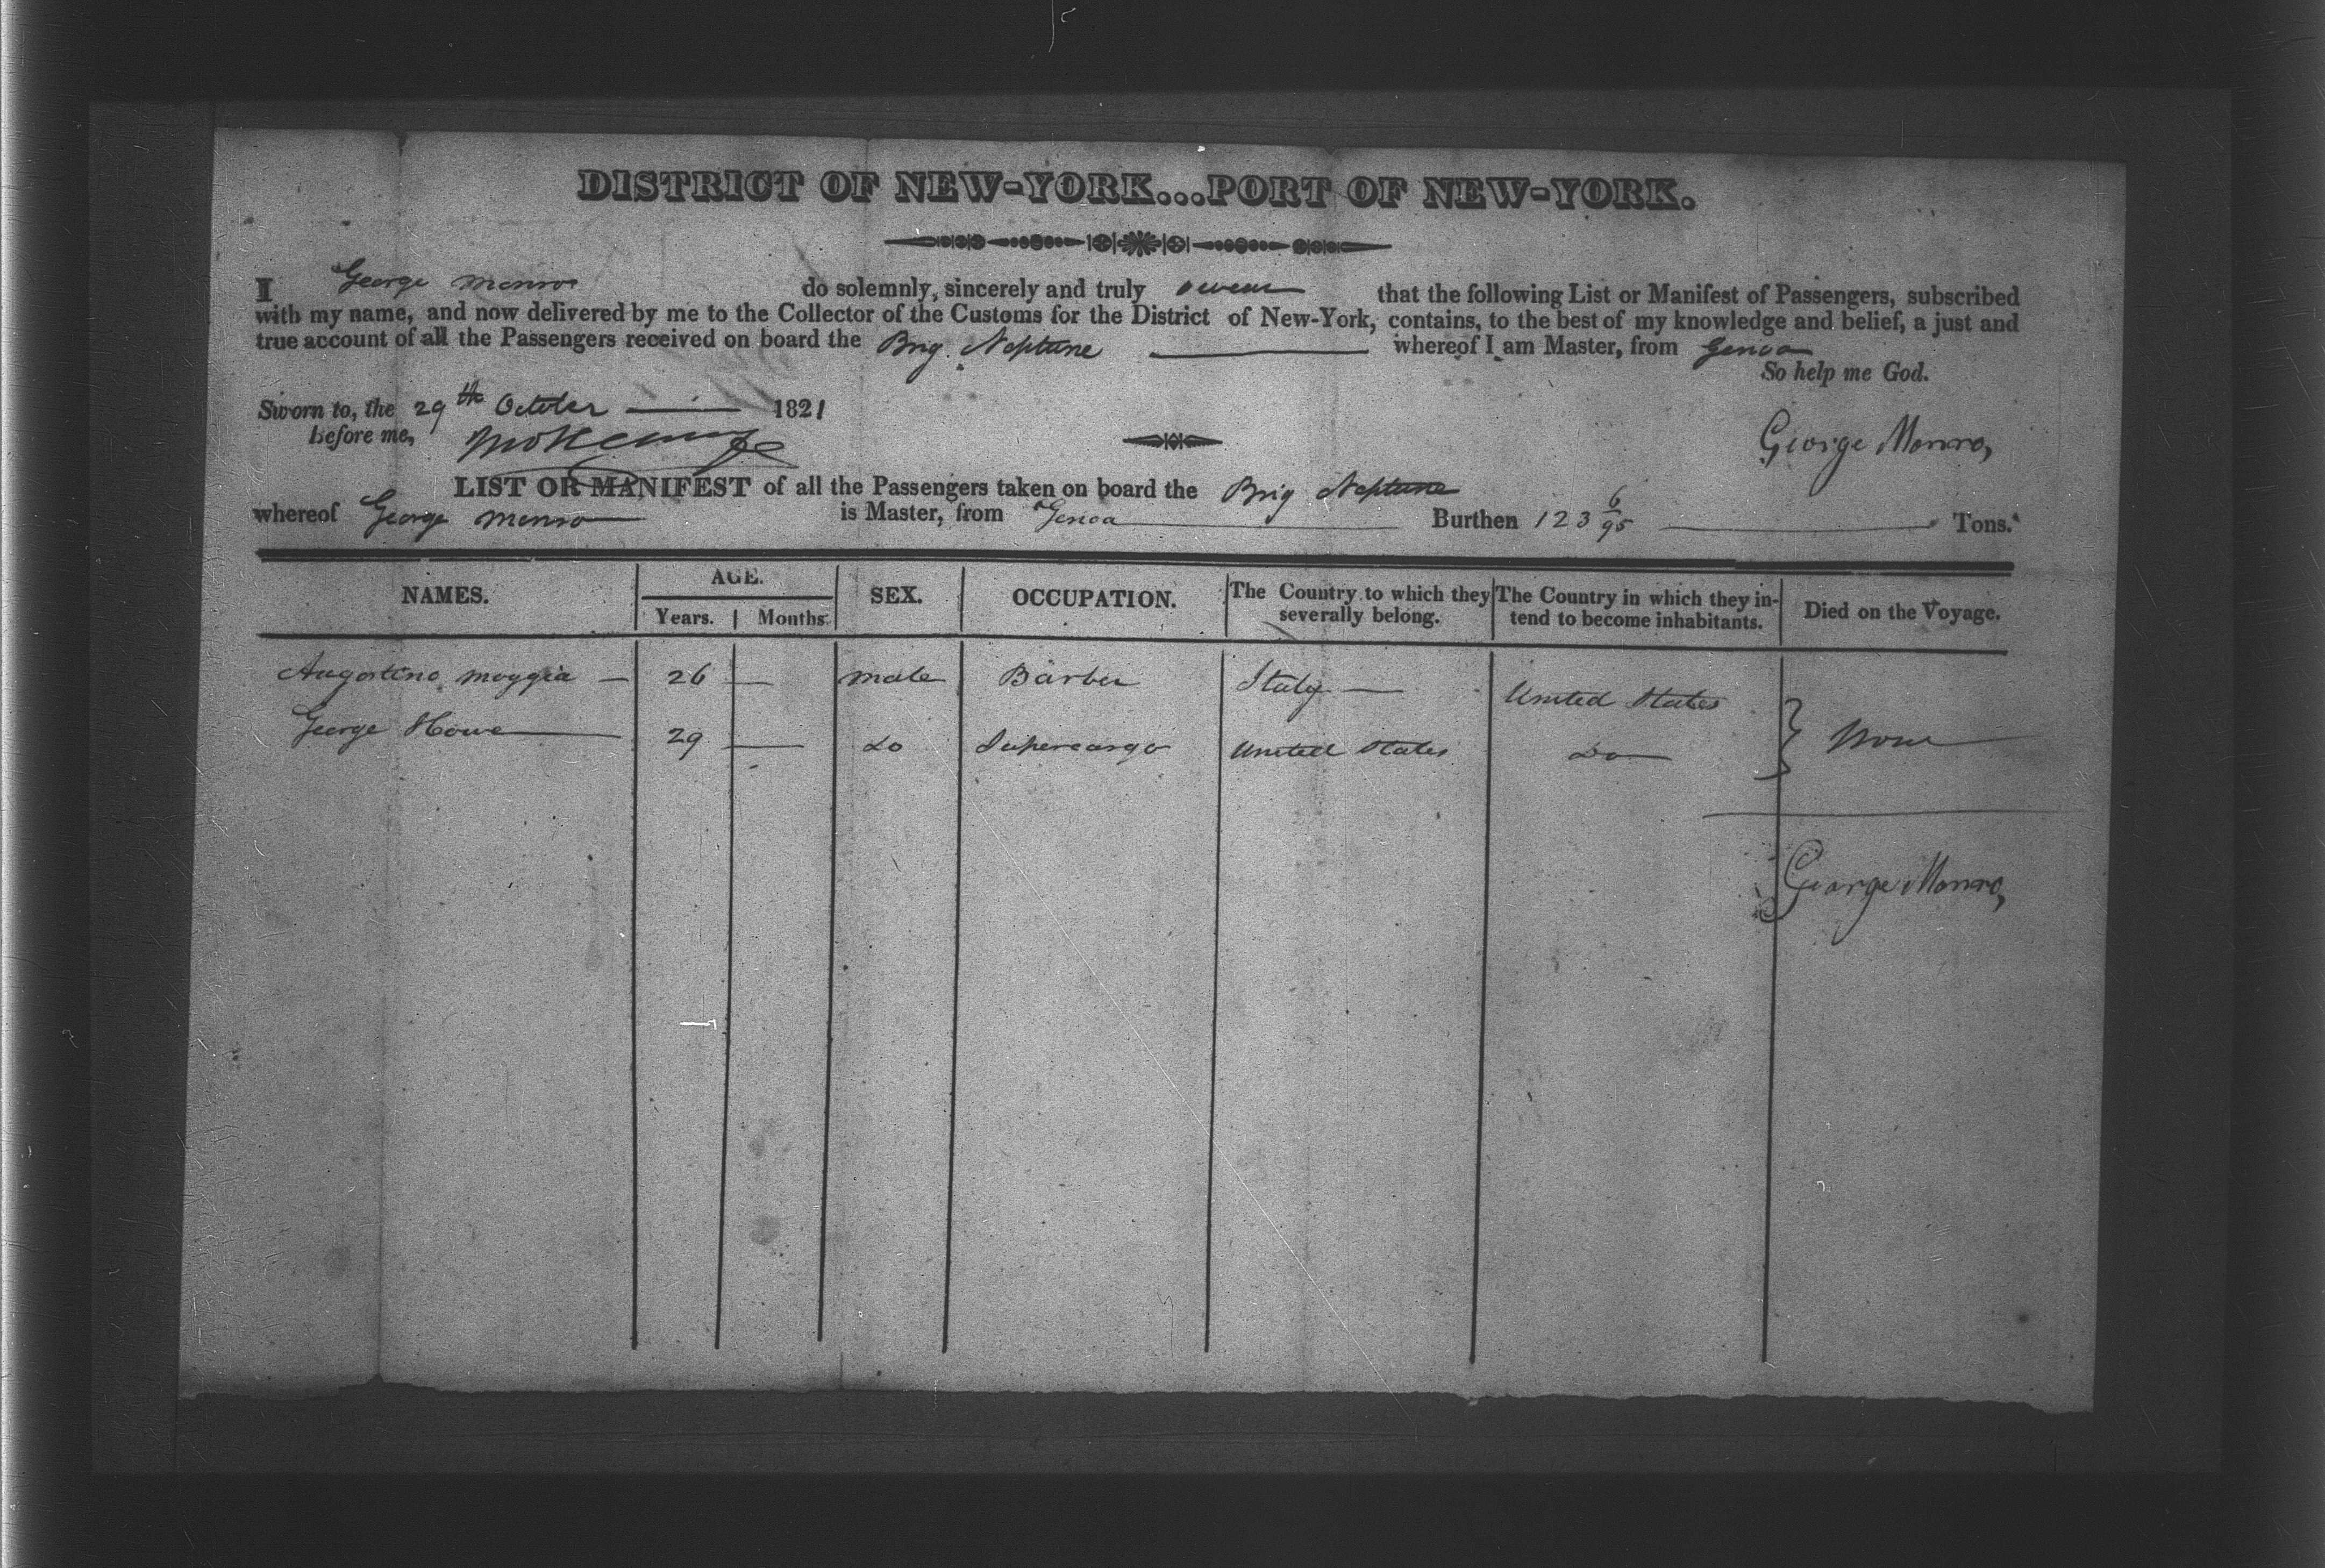 DISTRICT OF NEW-YORK...PORT OF NEW-YORK.
I George Monroe do solemnly, sincerely and truly swear that the following List or Manifest of Passengers, subscribed
with my name, and now delivered by me to the Collector of the Customs for the District of New-York, contains, to the best of my knowledge and belief, a just and
true account of all the Passengers received on board the Brig Neptune whereof I am Master, from Genoa
So help me God.
Sworn to, the 29th October 1821
Before me,
George Monro,
LIST OR MANIFEST of all the Passengers taken on board the Brig Neptune
whereof George Monro is Master, from Genoa Burthen 123 6/95 Tons.
NAMES. AGE. SEX. OCCUPATION. The Country to which they severally belong. The Country in which they intend to become inhabitants. Died on the Voyage.
Years. Months.
Augostino Moggia — 26 — male Barber Italy — United States
George Howe 29 — Do Supercargo United States Do None
George Monro,